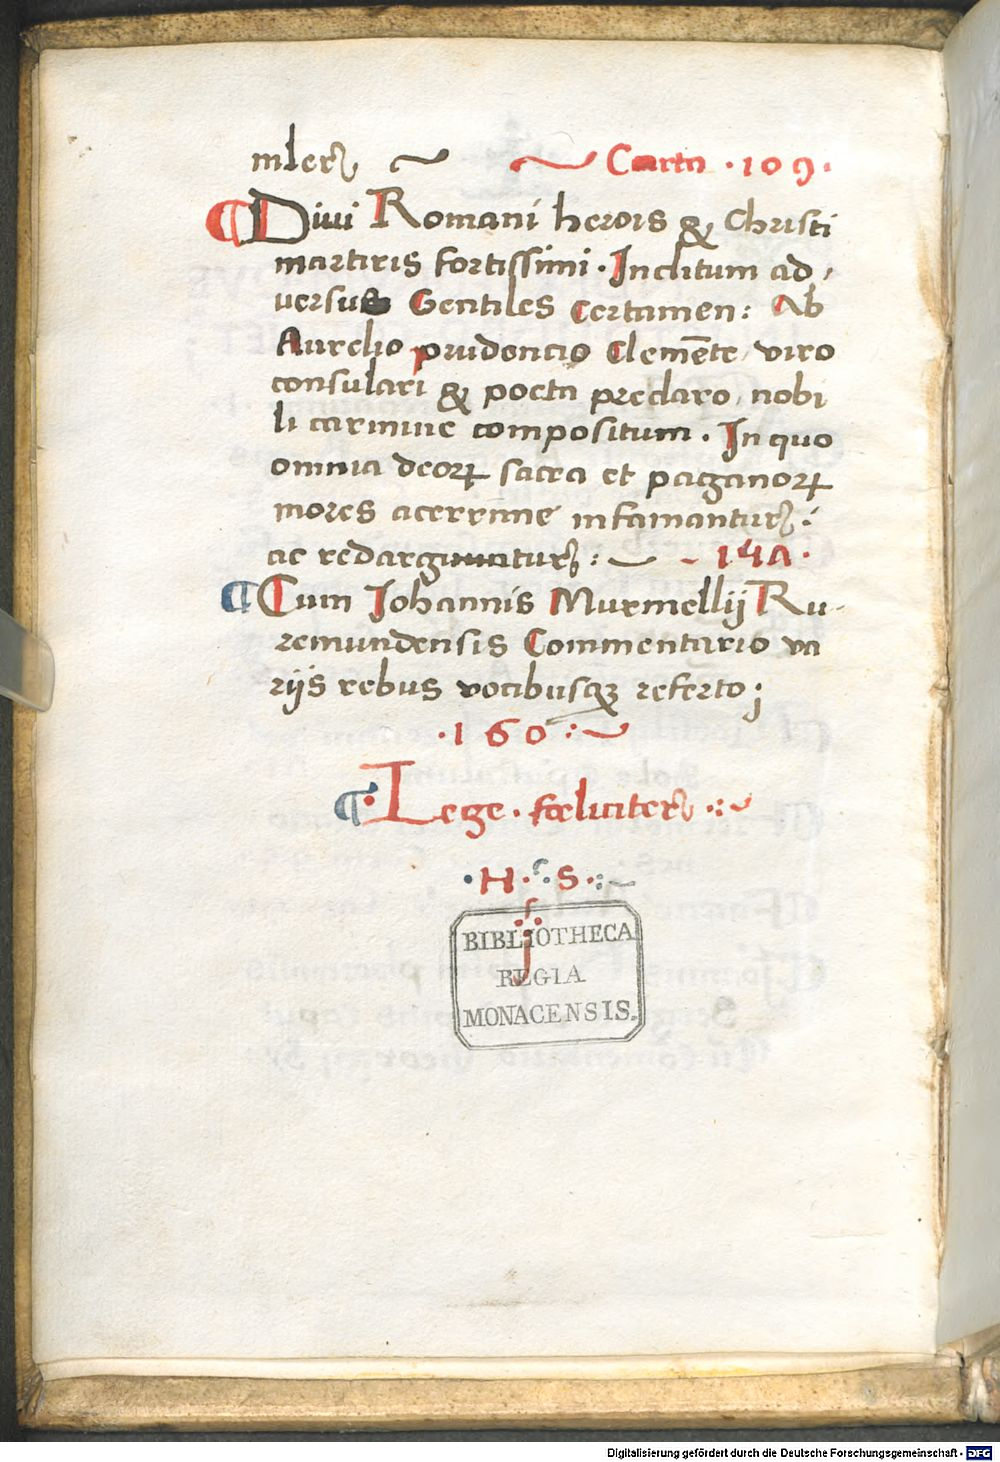 mler Carta .109.
¶ Divi Romani herois & Christi
martiris fortissimi. Inclitum ad,
versus Gentiles Certamen: Ab
Aurelio prudencio Clemēte, viro
consulari & poeta preclaro, nobi
li carmine compositum. In quo
omnia deoꝝ sacra et paganoꝝ
mores acerrime infamantur:
ac redarguuntur: 141.
¶ Cum Johannis Murmellij Ru-
remundensis Commentario va
rijs rebus vocibusqꝫ referto;
.160:
¶ Lege. fœliciter.:
.H. S.:
BIBLIOTHECA
REGIA
MONACENSIS.
Digitalisierung gefördert durch die Deutsche Forschungsgemeinschaft - DFG